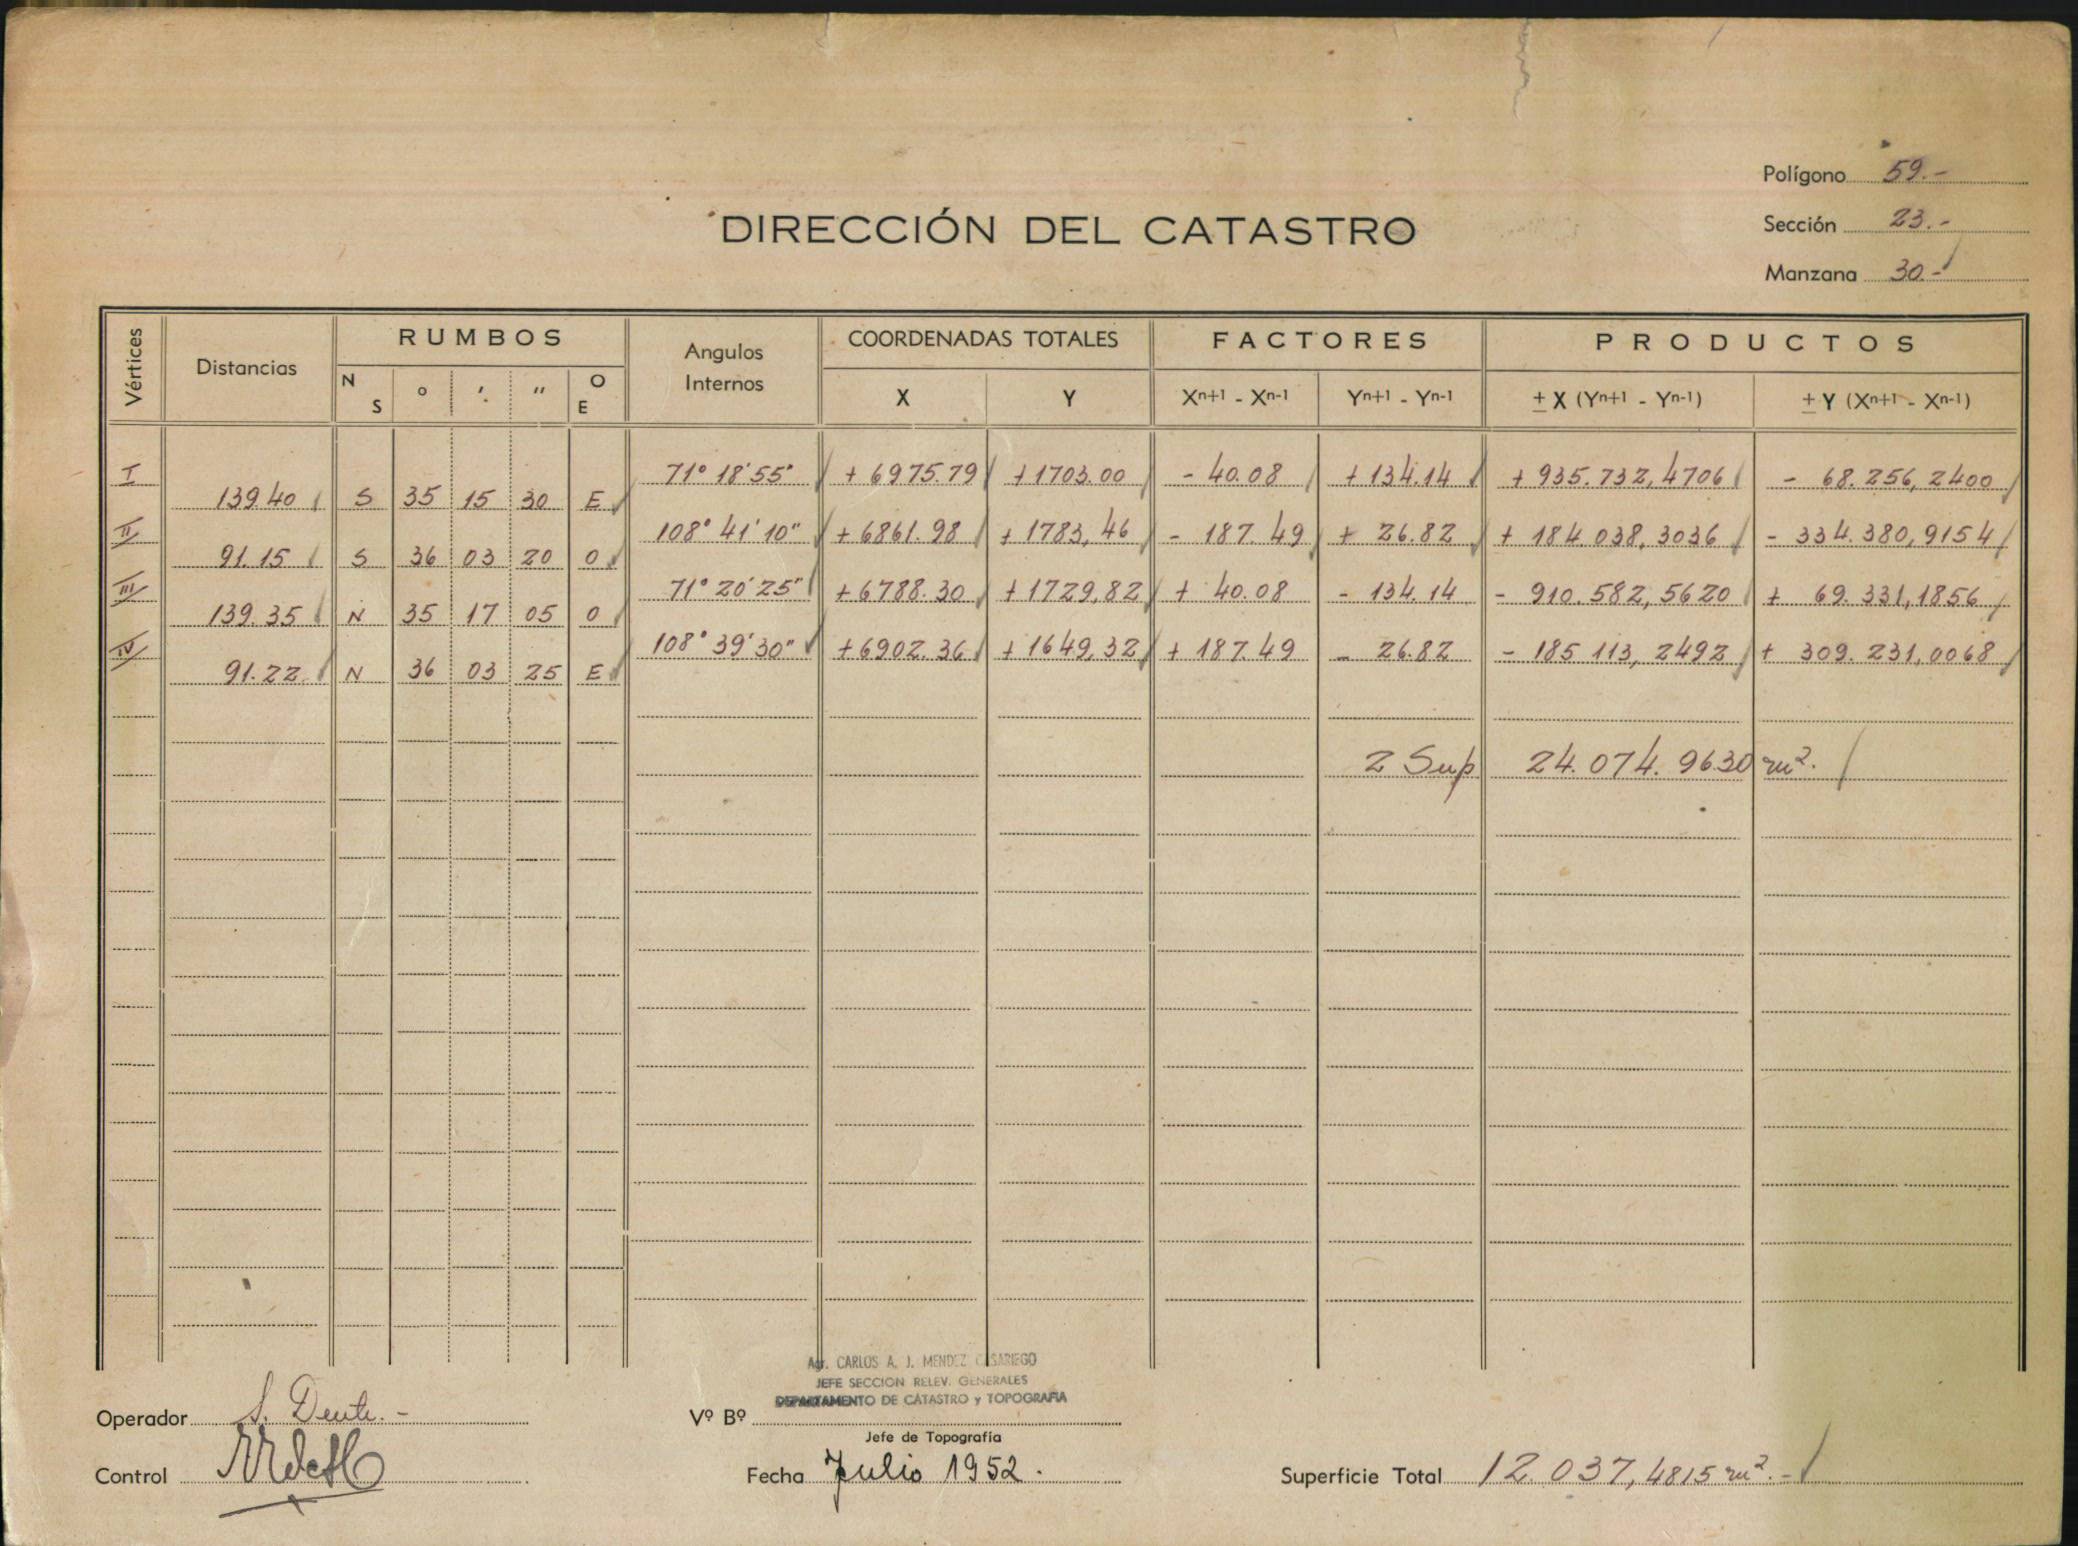 Polígono 59.-
Sección 23.-
Manzana 30.-
DIRECCIÓN DEL CATASTRO
Vértices Distancias RUMBOS Angulos Internos COORDENADAS TOTALES FACTORES PRODUCTOS
N S ° ' " O E X Y Xn+1 - Xn-1 Yn+1 - Yn-1 ± X (Yn+1 - Yn-1) ± Y (Xn+1 - Xn-1)
I 71° 18' 55" + 6975.79 + 1703.00 - 40.08 + 134.14 + 935.732,4706 - 68.256,2400
139.40 S 35 15 30 E
II 108° 41' 10" + 6861.98 + 1783,46 - 187.49 + 26.82 + 184.038,3036 - 334.380,9154
91.15 S 36 03 20 O
III 71° 20' 25" + 6788.30 + 1729,82 + 40.08 - 134.14 - 910.582,5620 + 69.331,1856
139.35 N 35 17 05 O
IV 108° 39' 30" + 6902.36 + 1649,32 + 187.49 - 26.82 - 185 113,2492 + 309.231,0068
91.22 N 36 03 25 E
2 Sup 24.074.9630 m².
Agr. CARLOS A. J. MENDEZ CASARIEGO
JEFE SECCION RELEV. GENERALES
DEPARTAMENTO DE CATASTRO y TOPOGRAFIA
Operador S. Dente.-
Vº Bº
Jefe de Topografía
Control
Fecha Julio 1952.
Superficie Total 12.037,4815 m².-